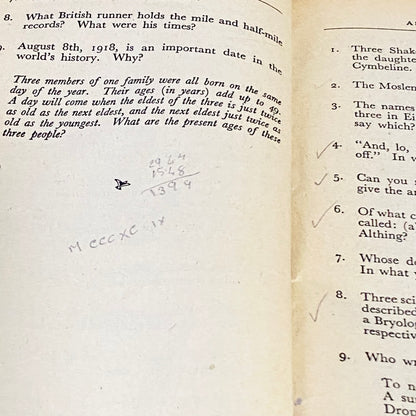 8. What British runner holds the mile and half-mile
records? What were his times?
9. August 8th, 1918, is an important date in the
world's history. Why?
Three members of one family were all born on the same
day of the year. Their ages (in years) add up to 49.
A day will come when the eldest of the three is just twice
as old as the next eldest, and the next eldest just twice as
old as the youngest. What are the present ages of these
three people?
1548
1399
M CCC XC IX
1. Three Shak
the daughte
Cymbeline.
2. The Moslem
3. The names
three in Ei
say which?
4. "And, lo,
off." In w
5. Can you
give the an
6. Of what c
called: (a)
Althing?
7. Whose de
In what y
8. Three sci
described
a Bryolog
respectiv
9. Who wr
To n
A su
Drop